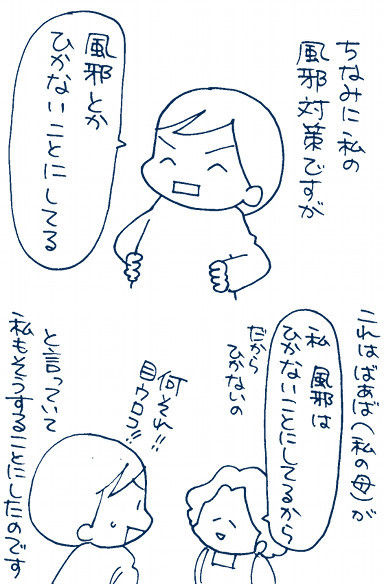 ちなみに私の
風邪対策ですが
風邪とか
ひかないことにしてる
これはばあば(私の母)が
私 風邪は
ひかないことにしてるから
だから
ひかないの
何それ!!
目ウロコ!!
と言っていて
私もそうすることにしたのです